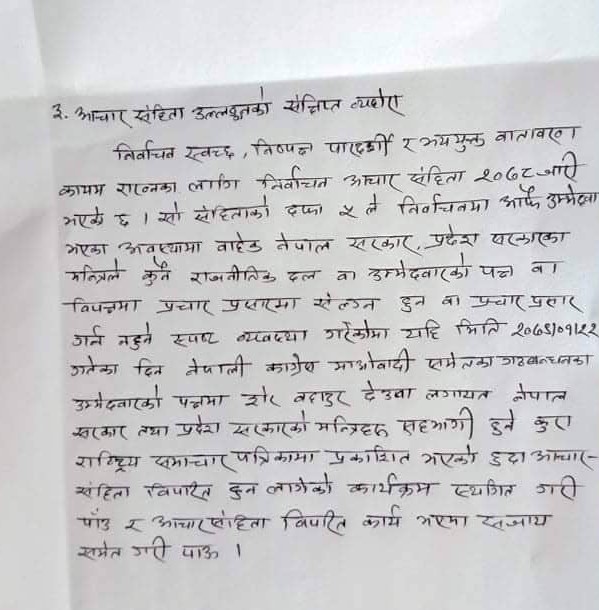 ३. आचार संहिता उल्लङ्घनको संक्षिप्त व्यहोरा
निर्वाचन स्वच्छ, निष्पक्ष पारदर्शी र भययुक्त वातावरण
कायम राख्नका लागि निर्वाचन आचार संहिता २०७८ जारी
भएको छ । सो संहिताको दफा ५ ले निर्वाचनमा आफै उम्मेदवा
भएका अवस्थामा वाहेक नेपाल सरकार, प्रदेश सरकारका
मन्त्रिले कुनै राजनीतिक दल वा उम्मेदवारको पक्ष वा
विपक्षमा प्रचार प्रसारमा संलग्न हुन वा प्रचार प्रसार
गर्न नहुने स्पष्ट व्यवस्था गरेकोमा यहि मिति २०७९/०१/२२
गतेका दिन नेपाली काग्रेस माओवादी समेतका गठबन्धनका
उम्मेदवारको पक्षमा शेर बहादुर देउवा लगायत नेपाल
सरकार तथा प्रदेश सरकारको मन्त्रिहरु सहभागी हुने कुरा
राष्ट्रिय समाचार पत्रिकामा प्रकाशित भएको हुदा आचार-
संहिता विपरित हुन लागेको कार्यक्रम स्थगित गरी
पाँउ र आचारसंहिता विपरित कार्य भएमा सजाय
समेत गरी पाऊ ।